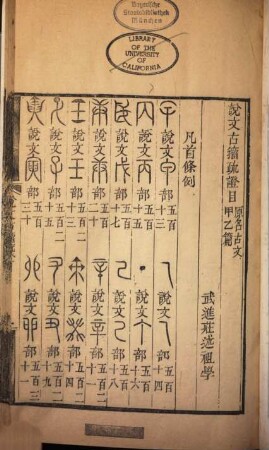 Bayerische
Staatsbibliothek
München
LIBRARY
OF THE
UNIVERSITY
OF
CALIFORNIA
說文古籀疏證目 原名古文甲乙篇
武進莊述祖學
凡首條例
甲 說文甲部五百十三 乙 說文乙部五百十四
丙 說文丙部五百十五 丁 說文个部五百十六
戊 說文戊部五百十七 己 說文己部五百十八
庚 說文庚部五百二十 辛 說文辛部五百二十一
壬 說文壬部五百二十三 癸 說文癸部五百二十四
子 說文子部五百二十五 丑 說文丑部五百二十九
寅 說文寅部五百三十 卯 說文卯部五百三十一